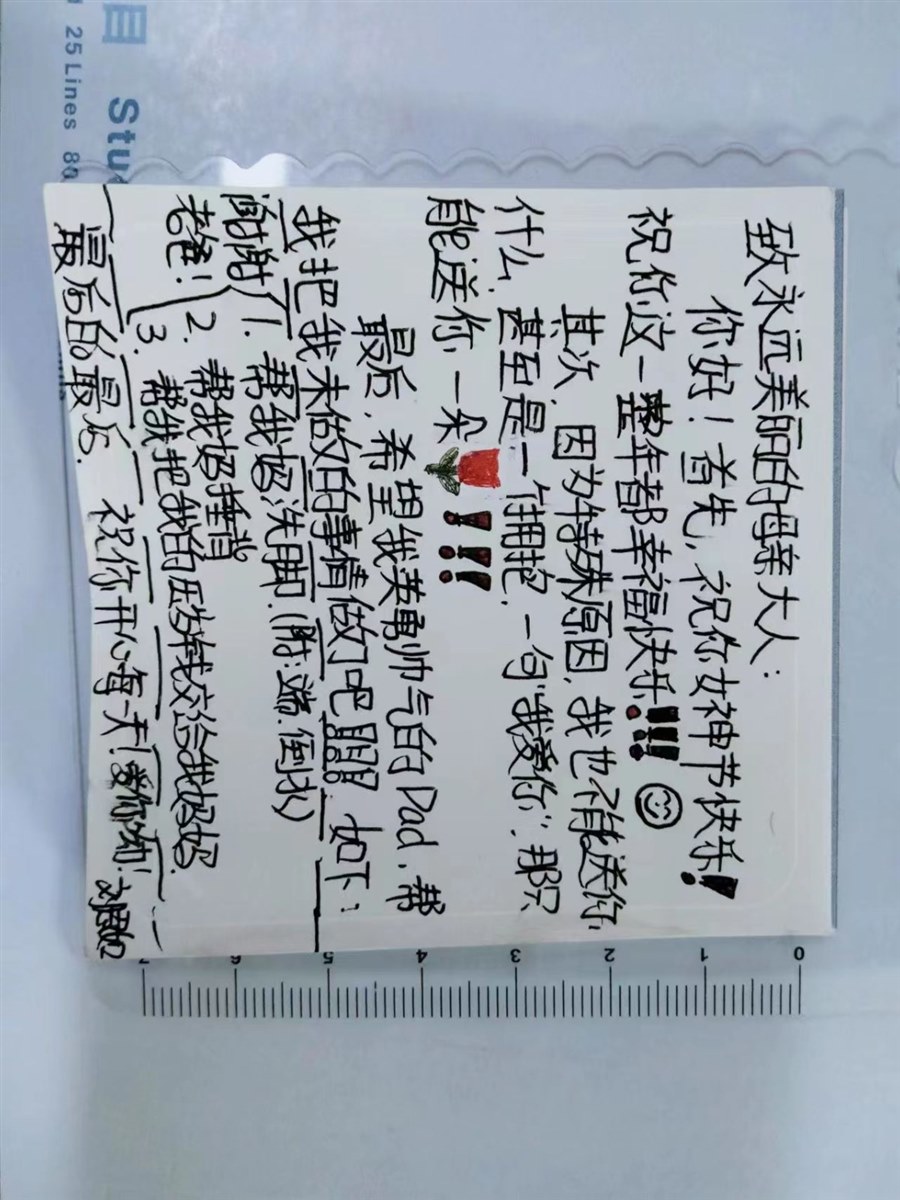 致永远美丽的母亲大人：
你好！首先，祝你女神节快乐！
祝你这一整年都幸福快乐!!!
其次，因为特殊原因，我也不能送你
什么，甚至是一个拥抱，一句"我爱你"，那只
能送你一朵 !!!
最后，希望我英勇帅气的Dad，帮
我把我未做的事情做了吧!!!! 如下：
谢谢老爸！
1. 帮我妈洗脚.(附:端、倒水)
2. 帮我妈捶背
3. 帮我把我的压岁钱交给我妈妈.
最后的最后. 祝你开心每一天!爱你呦!
25 Lines 80
Stu
0 1 2 3 4 5 6 7